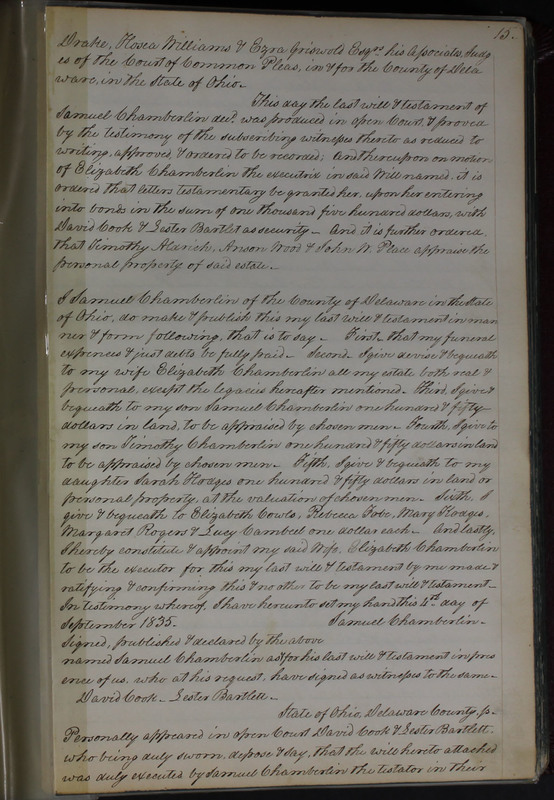 13.
Drake, Hosea Williams & Ezra Griswold Esqrs his Associates, Judg
es of the Court of Common Pleas, in & for the County of Dela
ware, in the State of Ohio.
This day the last will & testament of
Samuel Chamberlin decd. was produced in open Court, & proved
by the testimony of the subscribing witnesses thereto as reduced to
writing, approved, & ordered to be recorded; And thereupon on motion
of Elizabeth Chamberlin the executrix in said Will named, it is
ordered that letters testamentary be granted her, upon her entering
into bonds in the sum of one thousand five hundred dollars, with
David Cook & Lester Bartlet as security – And it is further ordered,
that Timothy Aldrich, Anson Wood & John W. Place appraise the
personal property of said estate –
I Samuel Chamberlin of the County of Delaware in the State
of Ohio, do make & publish this my last will & testament in man
ner & form following, that is to say – First, that my funeral
expences & just debts be fully paid – Second I give devise & bequeath
to my wife Elizabeth Chamberlin all my estate both real &
personal, except the legacies hereafter mentioned – Third, I give &
bequeath to my son Samuel Chamberlin one hundred & fifty
dollars in land, to be appraised by chosen men – Fourth, I give to
my son Timothy Chamberlin one hundred & fifty dollars in land
to be appraised by chosen men – Fifth, I give & bequeath to my
daughter Sarah Hodges one hundred & fifty dollars in land or
personal property, at the valuation of chosen men – Sixth, I
give & bequeath to Elizabeth Cowls, Rebecca Fobe, Mary Hodges,
Margaret Rogers & Lucy Cambell one dollar each – And lastly,
I hereby constitute & appoint my said Wife, Elizabeth Chamberlin
to be the executor for this my last will & testament by me made &
ratifying & confirming this & no other to be my last will & testament –
In testimony whereof, I have hereunto set my hand this day of
September 1835. Samuel Chamberlin –
Signed, published & declared by the above
named Samuel Chamberlin as & for his last will & testament in pres
ence of us, who at his request, have signed as witnesses to the same –
David Cook – Lester Bartlett –
State of Ohio, Delaware County, ss.
Personally appeared in open Court David Cook & Lester Bartlett,
who being duly sworn, depose & say, that the will hereto attached
was duly executed by Samuel Chamberlin the testator in their